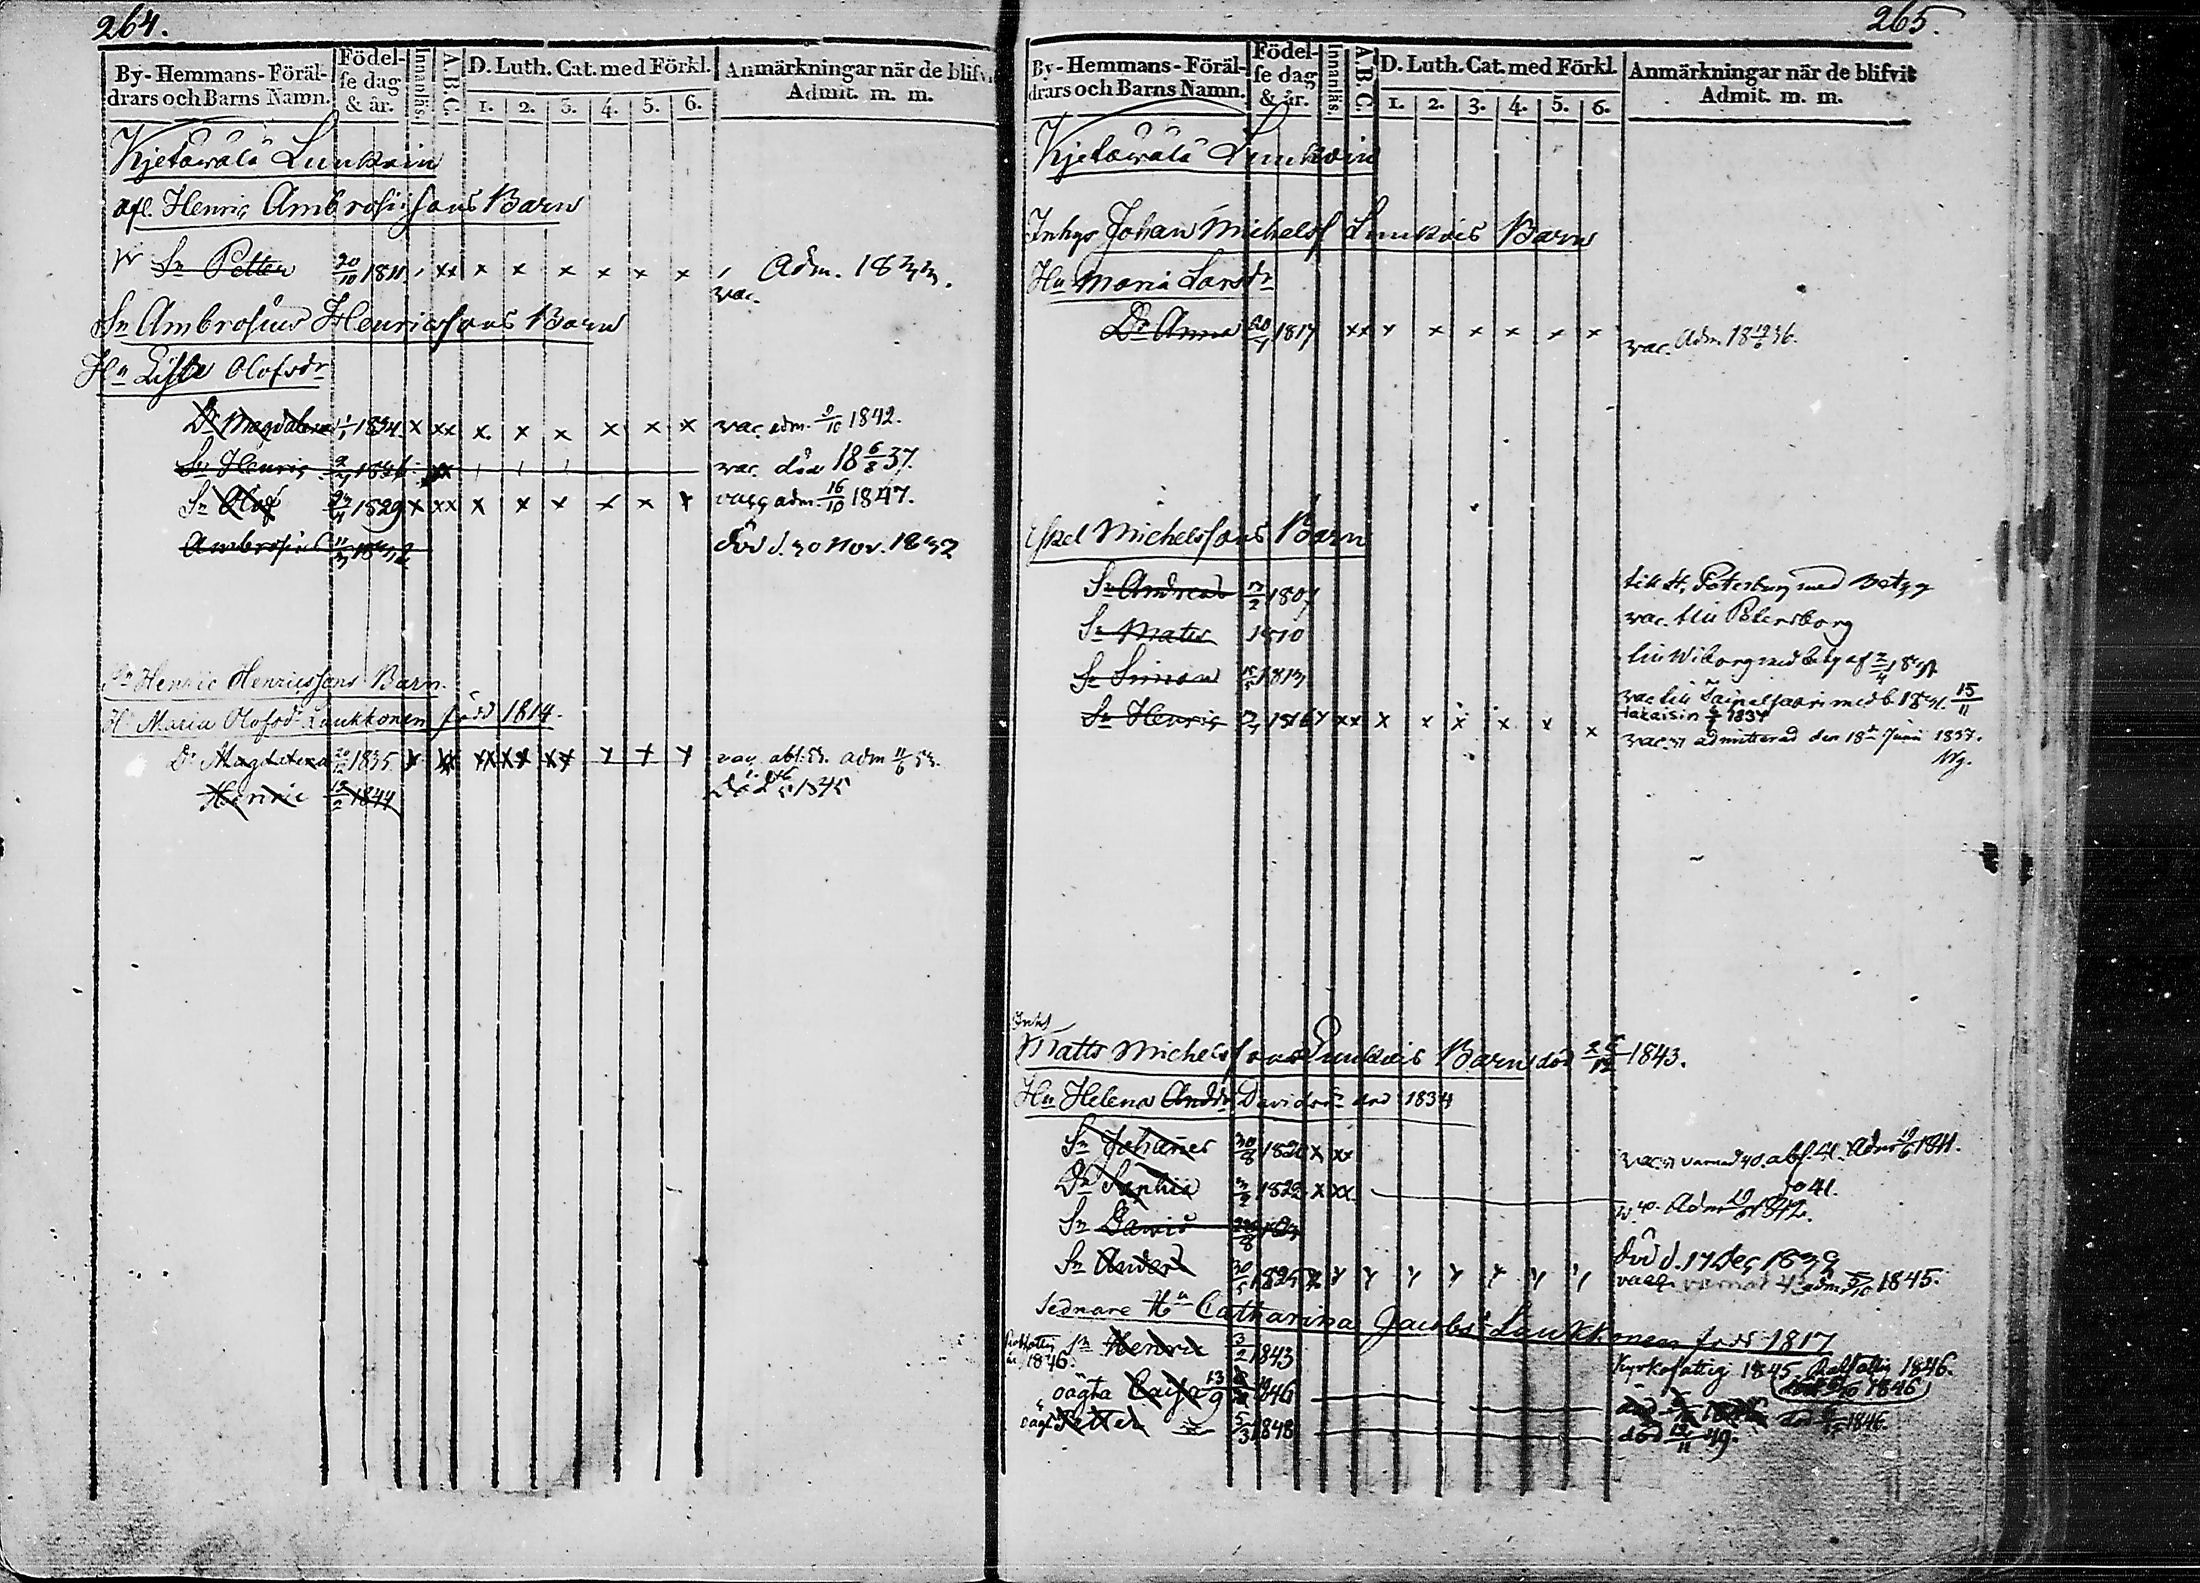 264.
By-Hemmans-Föräl-
drars och Barns Namn.
Födel-
se dag
& år.
Innanläs.
A.B.C.
D. Luth. Cat. med Förkl.
1. 2. 3. 4. 5. 6.
Anmärkningar när de blifvit
Admit. m. m.
Kjetäwälä Lunkoin
afl. Henric Ambrosiisons Barn
Sn Petter 20/10 1811 xx x x x x x x Adm. 1833.
vac.
Sn Ambrosius Henricssons Barn
Hu Lisa Olofsdr
Dr Magdalena 1/1 1824. x xx x x x x x x vac. adm. 9/10 1842.
Sn Henric 1826 vac. död 18 6/8 37.
Sn Olof 1829 x xx x x x x x x vacc adm. 16/10 1847.
Ambrosius 1832 död d. 30 Nov. 1832
Sn Henric Henricssons Barn.
Hu Maria Olofsdr Laukkonen född 1814.
Dr Magdalena 1835 vac abs. 53. adm 11/6 53.
Henric 1844 Död 1845
265.
By-Hemmans-Föräl-
drars och Barns Namn.
Födel-
se dag
& år.
Innanläs.
A.B.C.
D. Luth. Cat. med Förkl.
1. 2. 3. 4. 5. 6.
Anmärkningar när de blifvit
Admit. m. m.
Kjetäwälä Lunkoin
Inhys Johan Michelss Lunkois Barn
Hu Maria Larsdr
Dr Anna 1817 xx x x x x x x vac. Adm. 1836.
Eskel Michelssons Barn
Sn Andreas 1807 till St. Petersburg med betyg
Sn Matts 1810 vac. till Petersborg
Sn Simon 1813 till Wiborg med betyg af
vac till Taipalsaari med b. 15/11
Sn Henric 1816 xx x x x x x x takaisin 1834
vacc admitterad den 18de Junii 1837.
Inhs
Matts Michelssons Lunkois Barn död 1843.
Hu Helena Davidsdr död 1834
Sn Johannes 30/8 1820 x xx vacc varnad 40. abs. 41. Adm 1841.
Dr Sophia 1822 x xx 41.
Adm 1842.
Sn David
död d. 17 Dec
Sn Anders 30/5 1825 varnad adm 1845.
Sednare Hu Catharina Jacobsdr Laukkonen född 1817
Sn Henric 3/2 1843 Kyrkofattig 1845 1846.
1846.
oägta Caisa 13/9 1846 död 1846.
oägta Petter 5/3 1848 död 49.